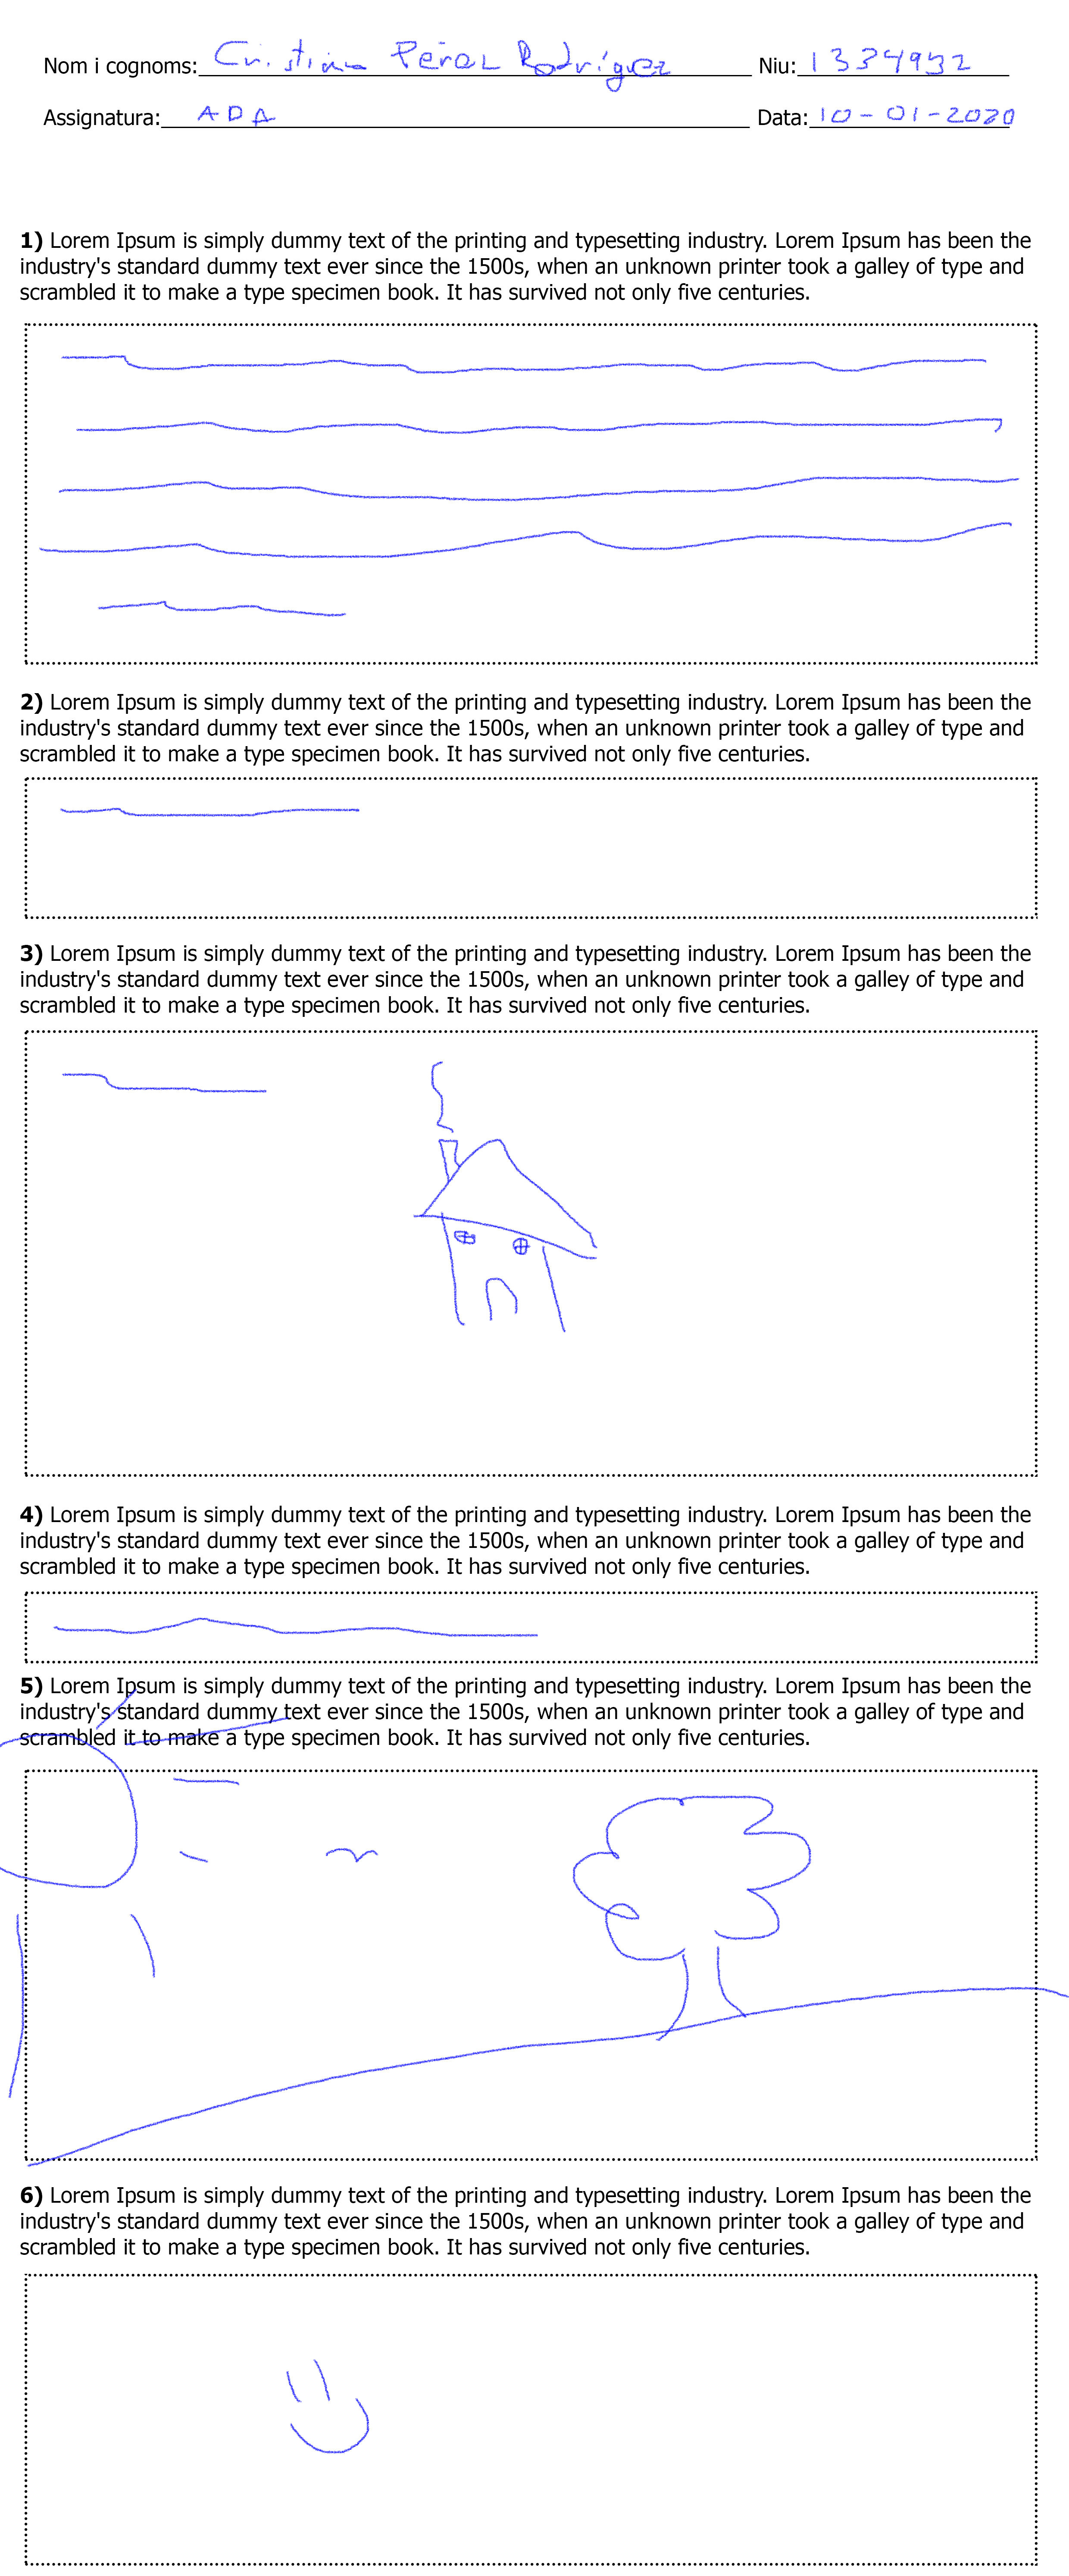 Nom i cognoms: Cristina Pérez Rodríguez Niu: 1334932
Assignatura: ADA Data: 10-01-2020
1) Lorem Ipsum is simply dummy text of the printing and typesetting industry. Lorem Ipsum has been the
industry's standard dummy text ever since the 1500s, when an unknown printer took a galley of type and
scrambled it to make a type specimen book. It has survived not only five centuries.
2) Lorem Ipsum is simply dummy text of the printing and typesetting industry. Lorem Ipsum has been the
industry's standard dummy text ever since the 1500s, when an unknown printer took a galley of type and
scrambled it to make a type specimen book. It has survived not only five centuries.
3) Lorem Ipsum is simply dummy text of the printing and typesetting industry. Lorem Ipsum has been the
industry's standard dummy text ever since the 1500s, when an unknown printer took a galley of type and
scrambled it to make a type specimen book. It has survived not only five centuries.
4) Lorem Ipsum is simply dummy text of the printing and typesetting industry. Lorem Ipsum has been the
industry's standard dummy text ever since the 1500s, when an unknown printer took a galley of type and
scrambled it to make a type specimen book. It has survived not only five centuries.
5) Lorem Ipsum is simply dummy text of the printing and typesetting industry. Lorem Ipsum has been the
industry's standard dummy text ever since the 1500s, when an unknown printer took a galley of type and
scrambled it to make a type specimen book. It has survived not only five centuries.
6) Lorem Ipsum is simply dummy text of the printing and typesetting industry. Lorem Ipsum has been the
industry's standard dummy text ever since the 1500s, when an unknown printer took a galley of type and
scrambled it to make a type specimen book. It has survived not only five centuries.